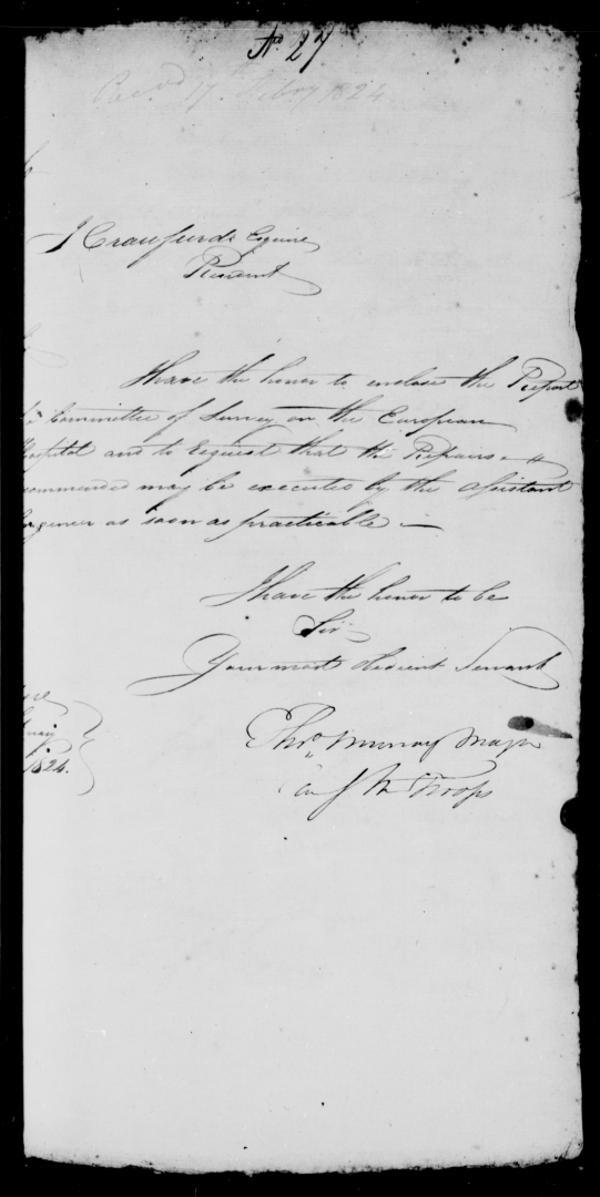 No 27
Recvd 17th Febry 1824
To
J Crawfurd Esquire
Resident
I have the honor to enclose the Report
Committee of Survey on the European
Hospital and to request that the Repairs re
commended may be executed by the Assistant
Engineer as soon as practicable —
I have the honor to be
Sir
Your most obedient Servant
ore
1824.
Thos. Murray Major
Troops